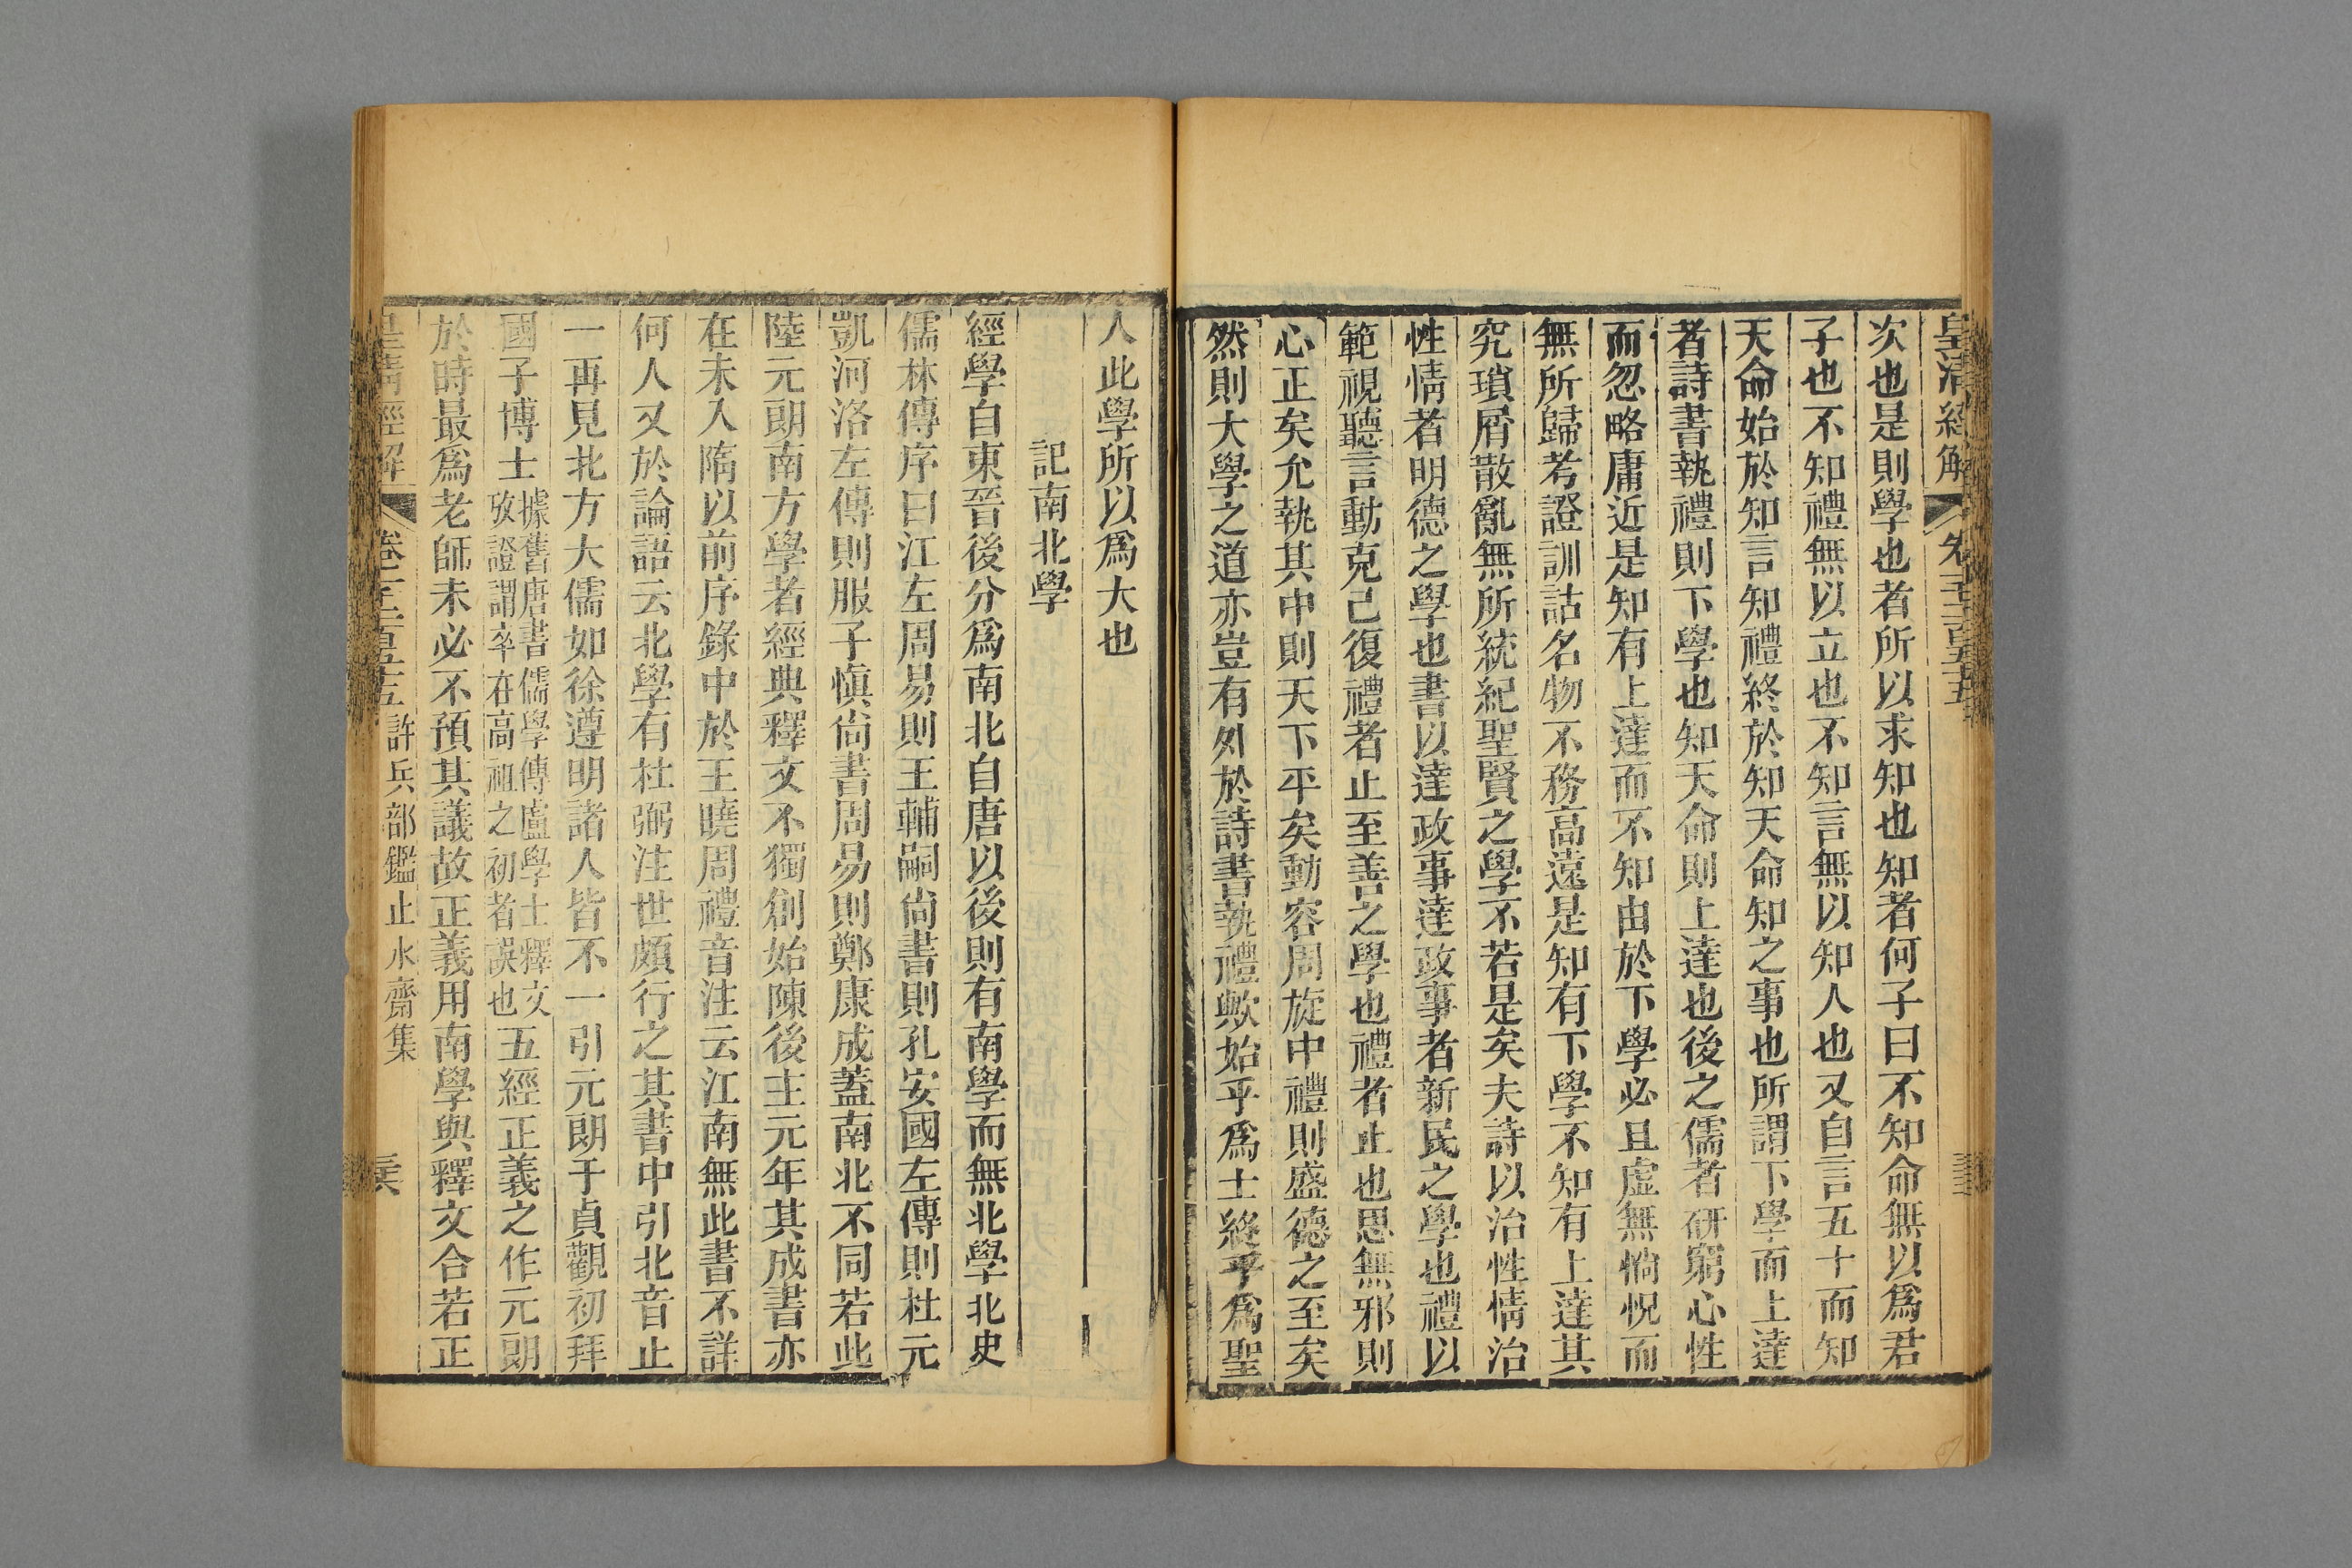 皇清經解
卷一千二百五十五
次也是則學也者所以求知也知者何子曰不知命無以爲君
子也不知禮無以立也不知言無以知人也又自言五十而知
天命始於知言知禮終於知天命知之事也所謂下學而上達
者詩書執禮則下學也知天命則上達也後之儒者研窮心性
而忽略庸近是知有上達而不知由於下學必且虛無惝怳而
無所歸考證訓詁名物不務高遠是知有下學不知有上達其
究瑣屑散亂無所統紀聖賢之學不若是矣夫詩以治性情治
性情者明德之學也書以達政事達政事者新民之學也禮以
範視聽言動克己復禮者止至善之學也禮者止也思無邪則
心正矣允執其中則天下平矣動容周旋中禮則盛德之至矣
然則大學之道亦豈有外於詩書執禮歟始乎爲士終乎爲聖
人此學所以爲大也
記南北學
經學自東晉後分爲南北自唐以後則有南學而無北學北史
儒林傳序曰江左周易則王輔嗣尙書則孔安國左傳則杜元
凱河洛左傳則服子愼尙書周易則鄭康成蓋南北不同若此
陸元朗南方學者經典釋文不獨創始陳後主元年其成書亦
在未入隋以前序錄中於王曉周禮音注云江南無此書不詳
何人又於論語云北學有杜弼注世頗行之其書中引北音止
一再見北方大儒如徐遵明諸人皆不一引元朗于貞觀初拜
國子博士據舊唐書儒學傳盧學士釋文攷證謂卒在高祖之初者誤也五經正義之作元朗
於時最爲老師未必不預其議故正義用南學與釋文合若正
皇清經解
卷一千二百五十五 許兵部鑑止水齋集